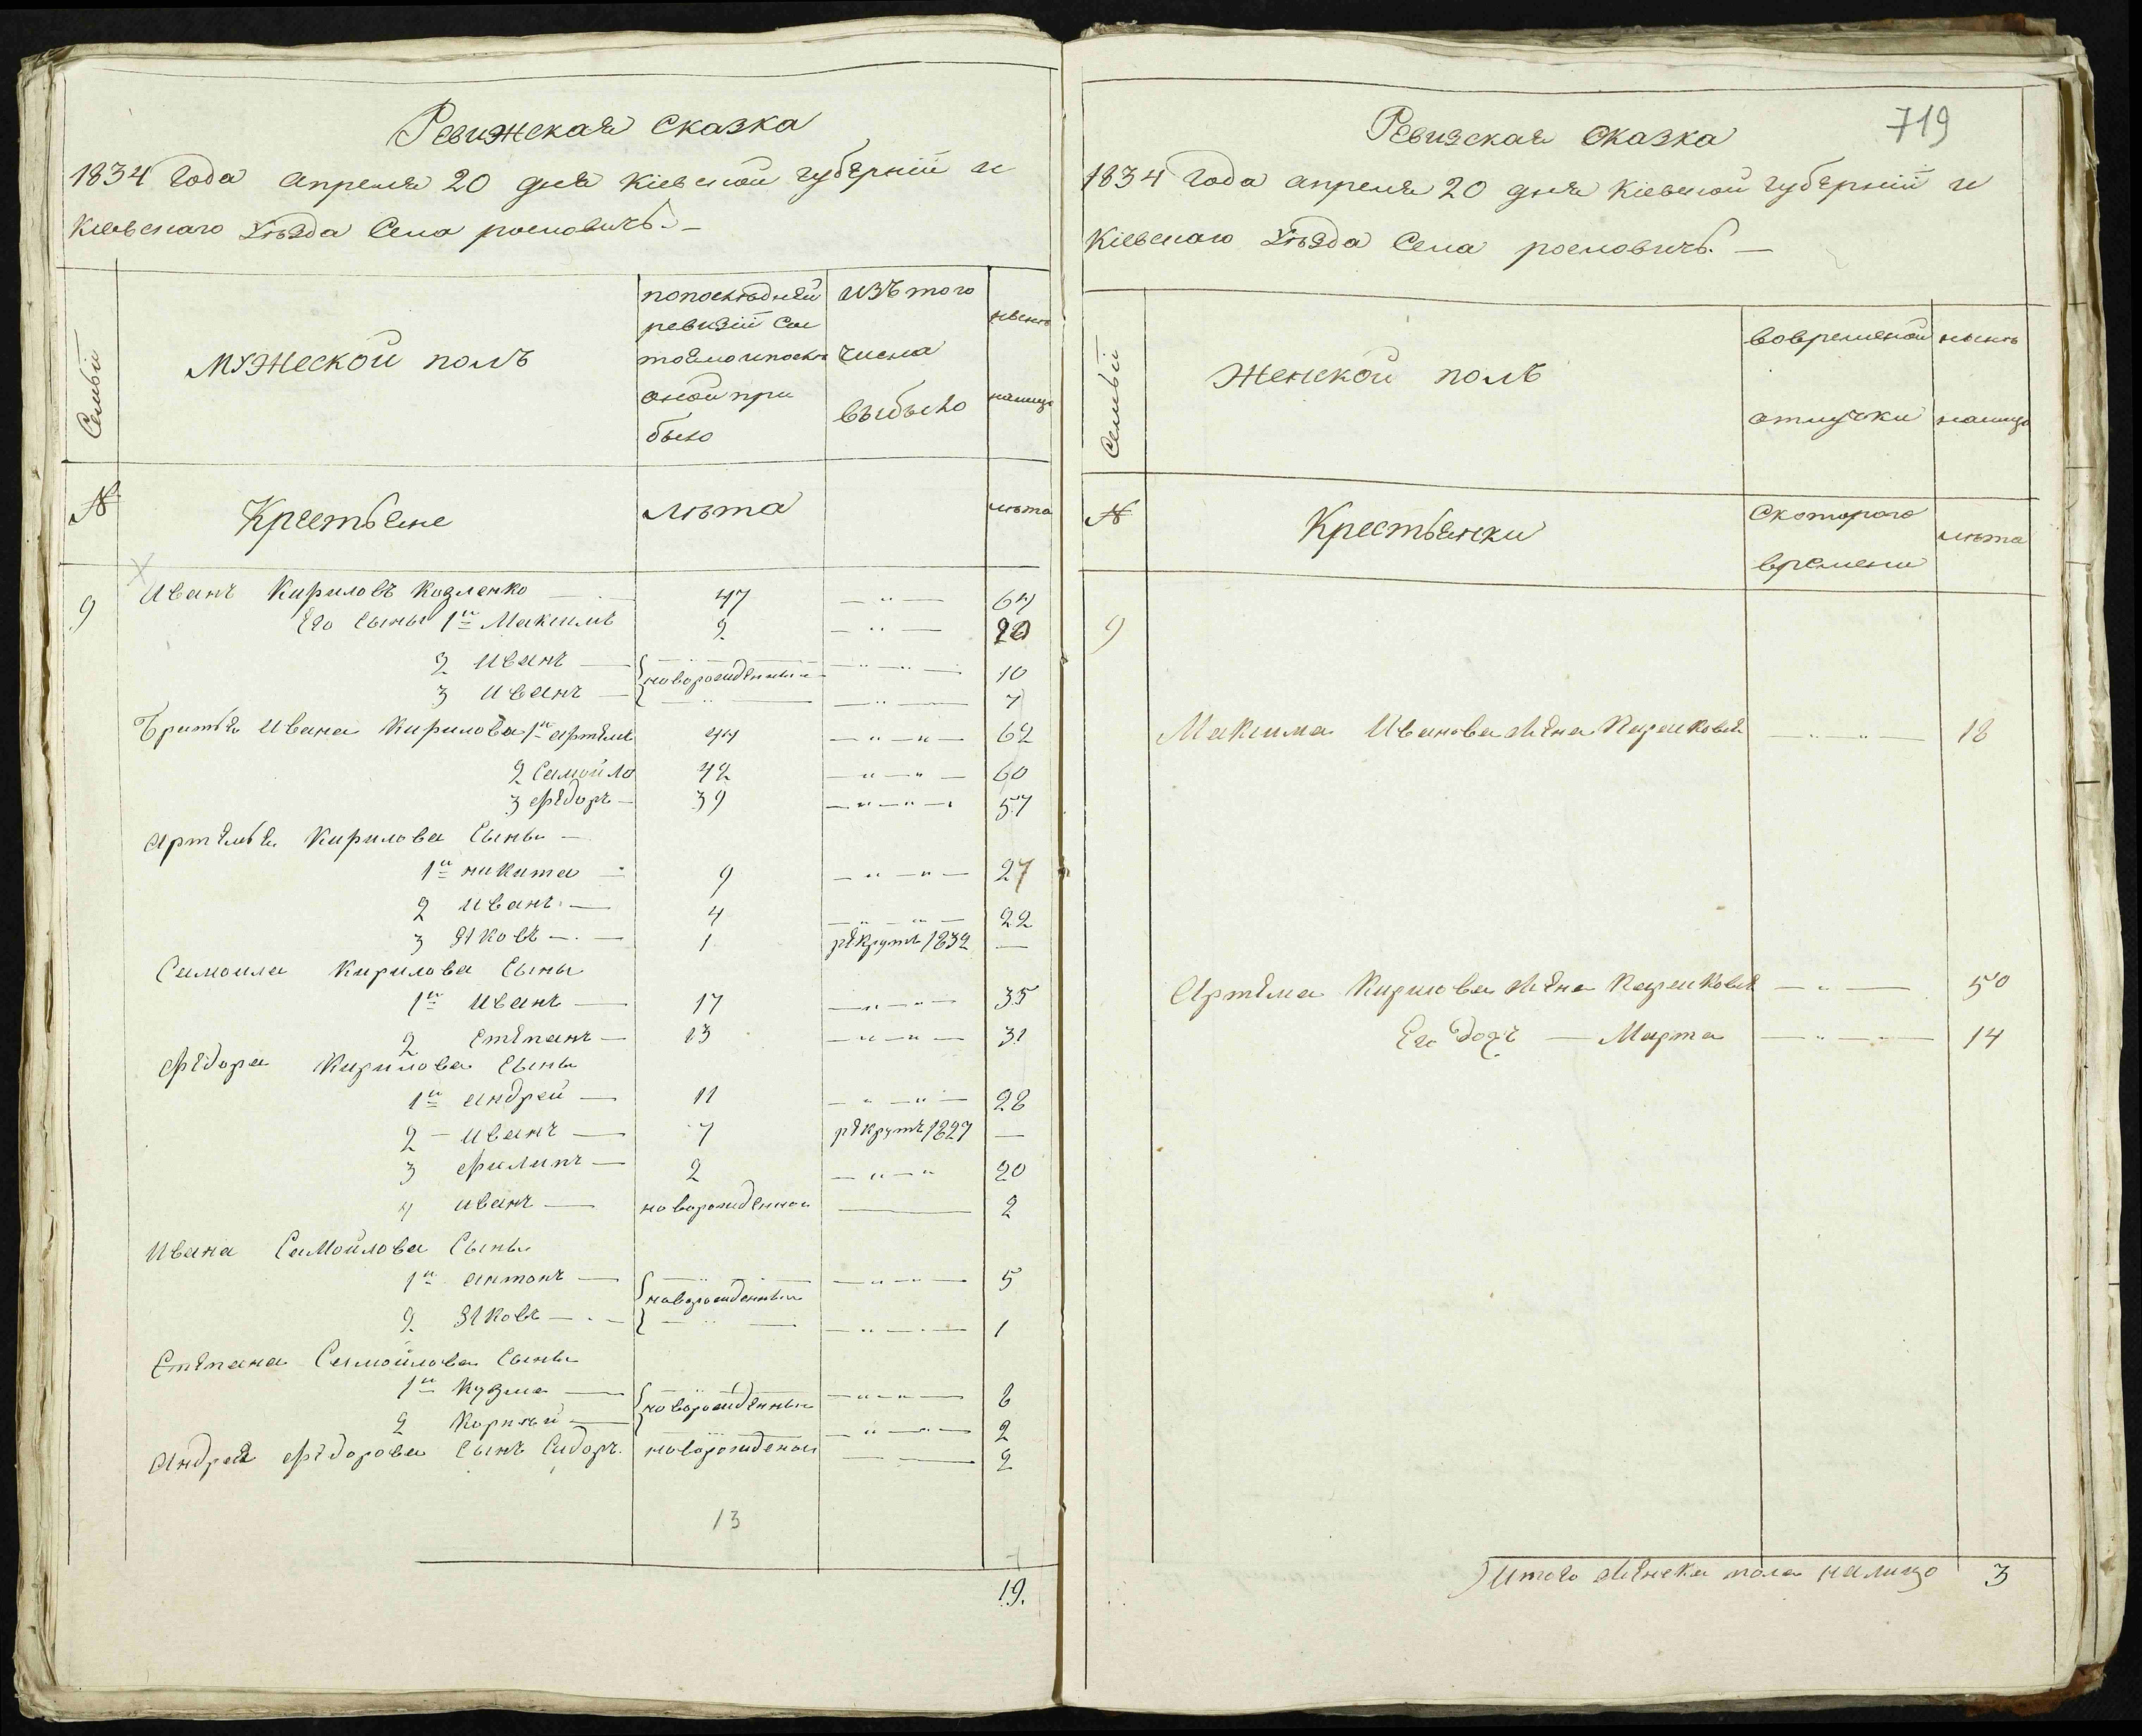 Ревижская Сказка
1834 года апреля 20 дня Кіевской губерніи и
Кіевскаго Уѣзда Села рословичъ. —
Семьи
мужеской полъ
попослѣдней
ревизіи Сос
тояло ипослѣ
оной при
было
изъ того
числа
выбыло
нынѣ
налицо
№
Крестьяне
лѣта
лѣта
9 Иванъ Кириловъ Козленко 47 — " — 64
Его Сыны 1й Максимъ 2 — " — 20
2 Иванъ — новорожденныи — " — 10
3 Иванъ — — " — 7
Братья Ивана Кирилова 1й артемъ 44 — " — " — 62
2 Самойло 42 — " — " — 60
3 Федоръ — 39 — " — " — 57
Артемья Кирилова Сыны —
1й никита — 9 — " — " — 27
2 Иванъ — 4 — " — " — 22
3 Яковъ — 1 рекрутъ 1832 —
Самоила Кирилова Сыны
1й Иванъ — 17 — " — " — 35
2 Степанъ — 13 — " — " — 31
Федора Кирилова Сыны
1й андрей — 11 — " — " — 28
2 — иванъ — 7 рекрутъ 1827 —
3 Филипъ — 2 — " — " 20
4 иванъ — новорожденной — 2
Ивана Самойлова Сыны
1й антонъ — новорожденныи — " — " — 5
2 Яковъ — — " — " — 1
Степана Самойлова Сыны
1й Кузма — новорожденныи — " — " — 8
2 Корнѣй — — " — " — 2
Андрея Федорова Сынъ Сидоръ. новорожденой — 2
13
19.
719
Ревизская Сказка
1834 года апреля 20 дня Кіевской губерніи и
Кіевскаго Уѣзда Села рословичъ. —
Семьи
Женской полъ
вовременой
отлучки
нынѣ
налицо
№
Крестьянки
Скотораго
времени
лѣта
9
Максима Иванова жена — " — " — 18
Артема Кирилова жена — " — 50
Его дочь — Марта — " — " — 14
Итого женска пола налицо 3